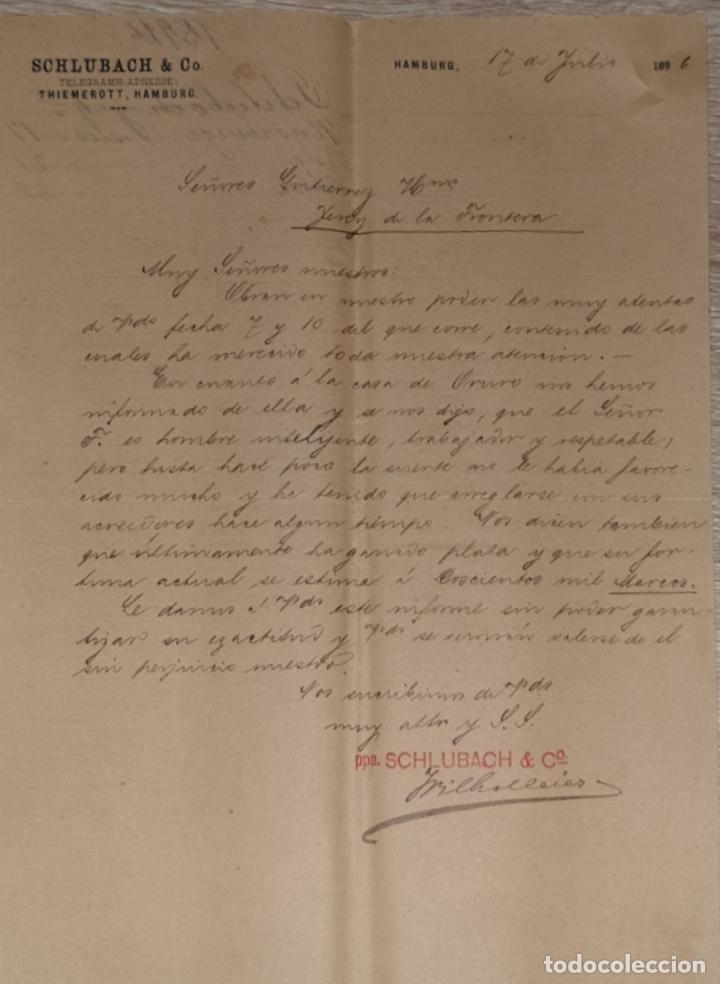 SCHLUBACH & Co.
TELEGRAMM-ADRESSE:
THIEMEROTT, HAMBURG.
HAMBURG, 17 de Julio 1896
Señores Gutierrez Hnos
Jerez de la Frontera
Muy Señores nuestros:
Obran en nuestro poder las muy atentas
de Vds fecha 7 y 10 del que corre, contenido de las
cuales ha merecido toda nuestra atención. —
En cuanto á la casa de Oruro nos hemos
informado de ella y se nos dijo, que el Señor
F. es hombre intelijente, trabajador y respetable,
pero hasta hace poco la suerte no le habia favore-
cido mucho y ha tenido que arreglarse con sus
acreedores hace algun tiempo. Nos dicen tambien
que últimamente ha ganado plata y que su for-
tuna actual se estima á Doscientos mil Marcos.
Le damos á Vds este informe sin poder garan-
tizar su exactitud y Vds se servirán valerse de el
sin perjuicio nuestro.
Nos suscribimos de Vds
muy atto y S.S.
ppa. SCHLUBACH & Co.
todocoleccion